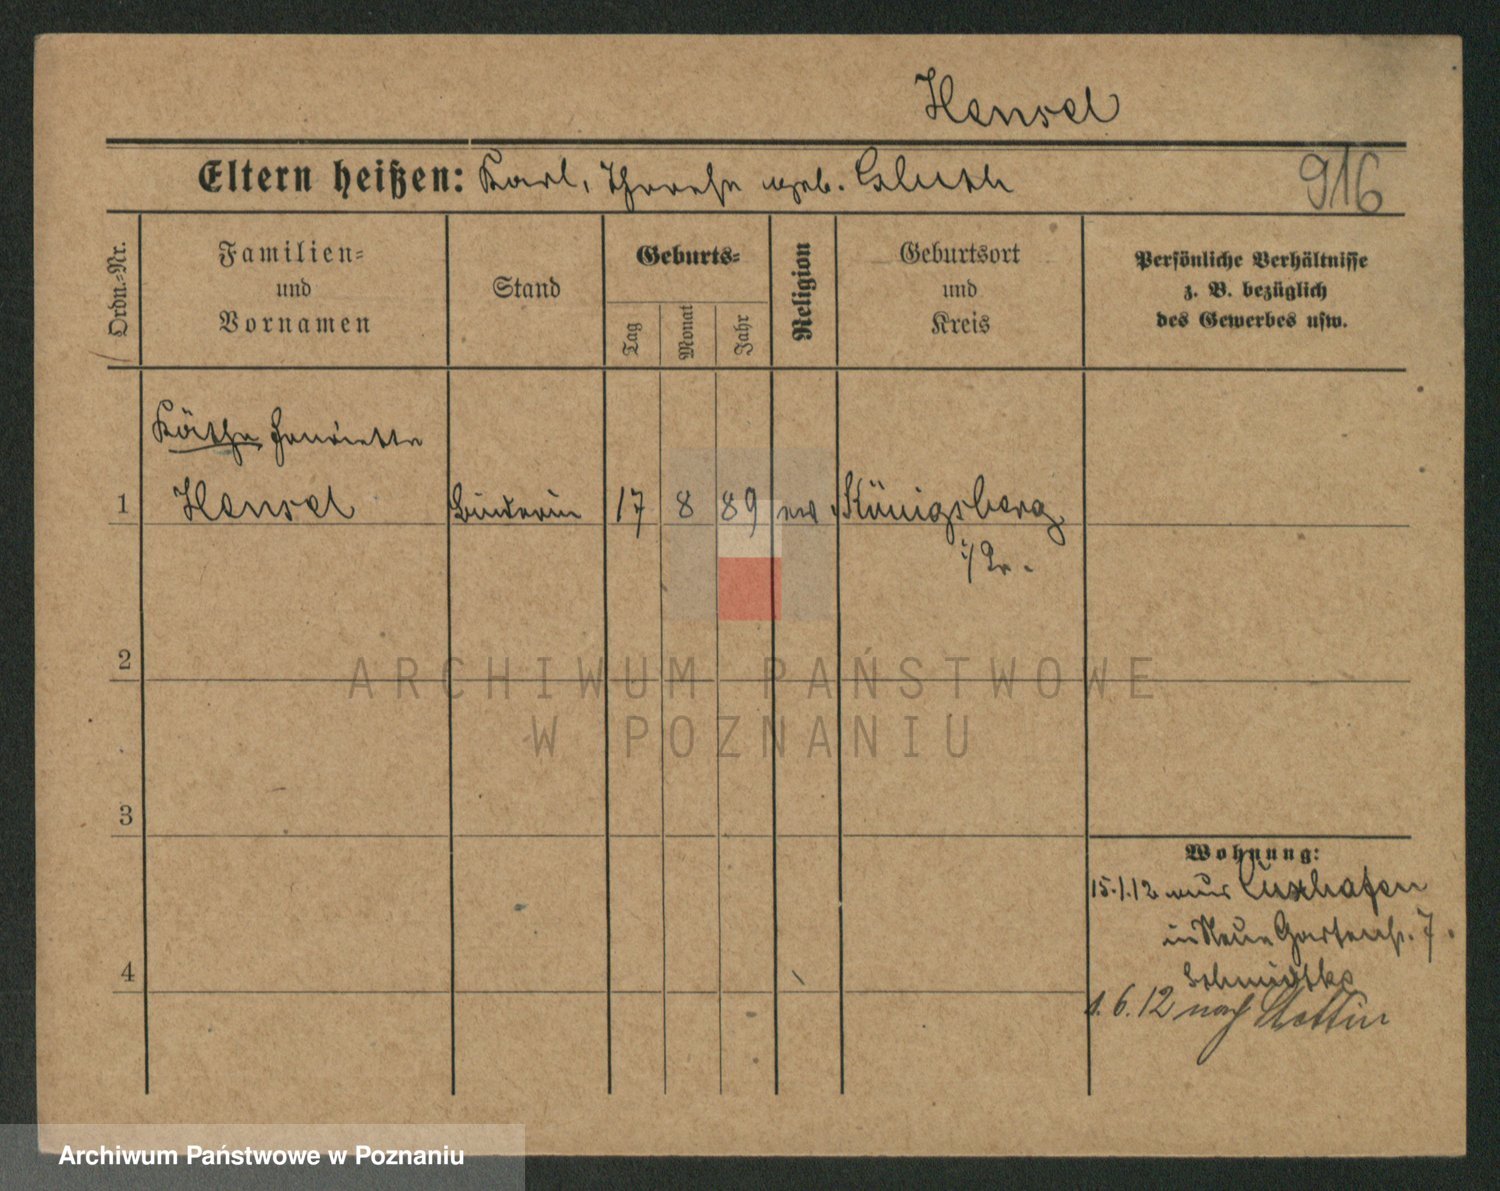 Hensel
Eltern heißen: Karl, Therese geb. Gluth
916
Ordn.-Nr.
Familien-
und
Vornamen
Stand
Geburts-
Tag
Monat
Jahr
Religion
Geburtsort
und
Kreis
Persönliche Verhältnisse
z. B. bezüglich
des Gewerbes usw.
Käthe Henriette
1 Hensel Binderin 17 8 89 ev. Königsberg
i/Pr.
2
ARCHIWUM PAŃSTWOWE
W POZNANIU
3
Wohnung:
15.1.12 aus Cuxhafen
in Neue Gartenstr. 7.
Schmidtke
4
1.6.12 nach Stettin
Archiwum Państwowe w Poznaniu